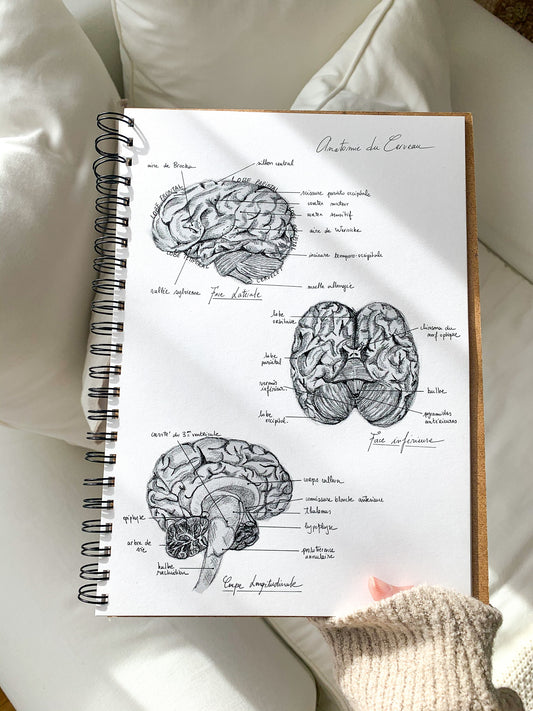 Anatomie du Cerveau
aire de Broca
sillon central
LOBE FRONTAL
LOBE PARIETAL
scissure pariéto-occipitale
cortex moteur
cortex sensitif
aire de Wernicke
incisure temporo-occipitale
moelle allongée
vallée sylvienne
Face Latérale
lobe
chiasma du
nerf optique
lobe
pariétal
vermis
inférieur
bulbe
lobe
occipital
pyramides
antérieures
Face inférieure
cavité du 3e ventricule
corps calleux
comissure blanche antérieure
Thalamus
épiphyse
hypophyse
arbre de
vie
protubérance
annulaire
bulbe
rachidien
Coupe Longitudinale